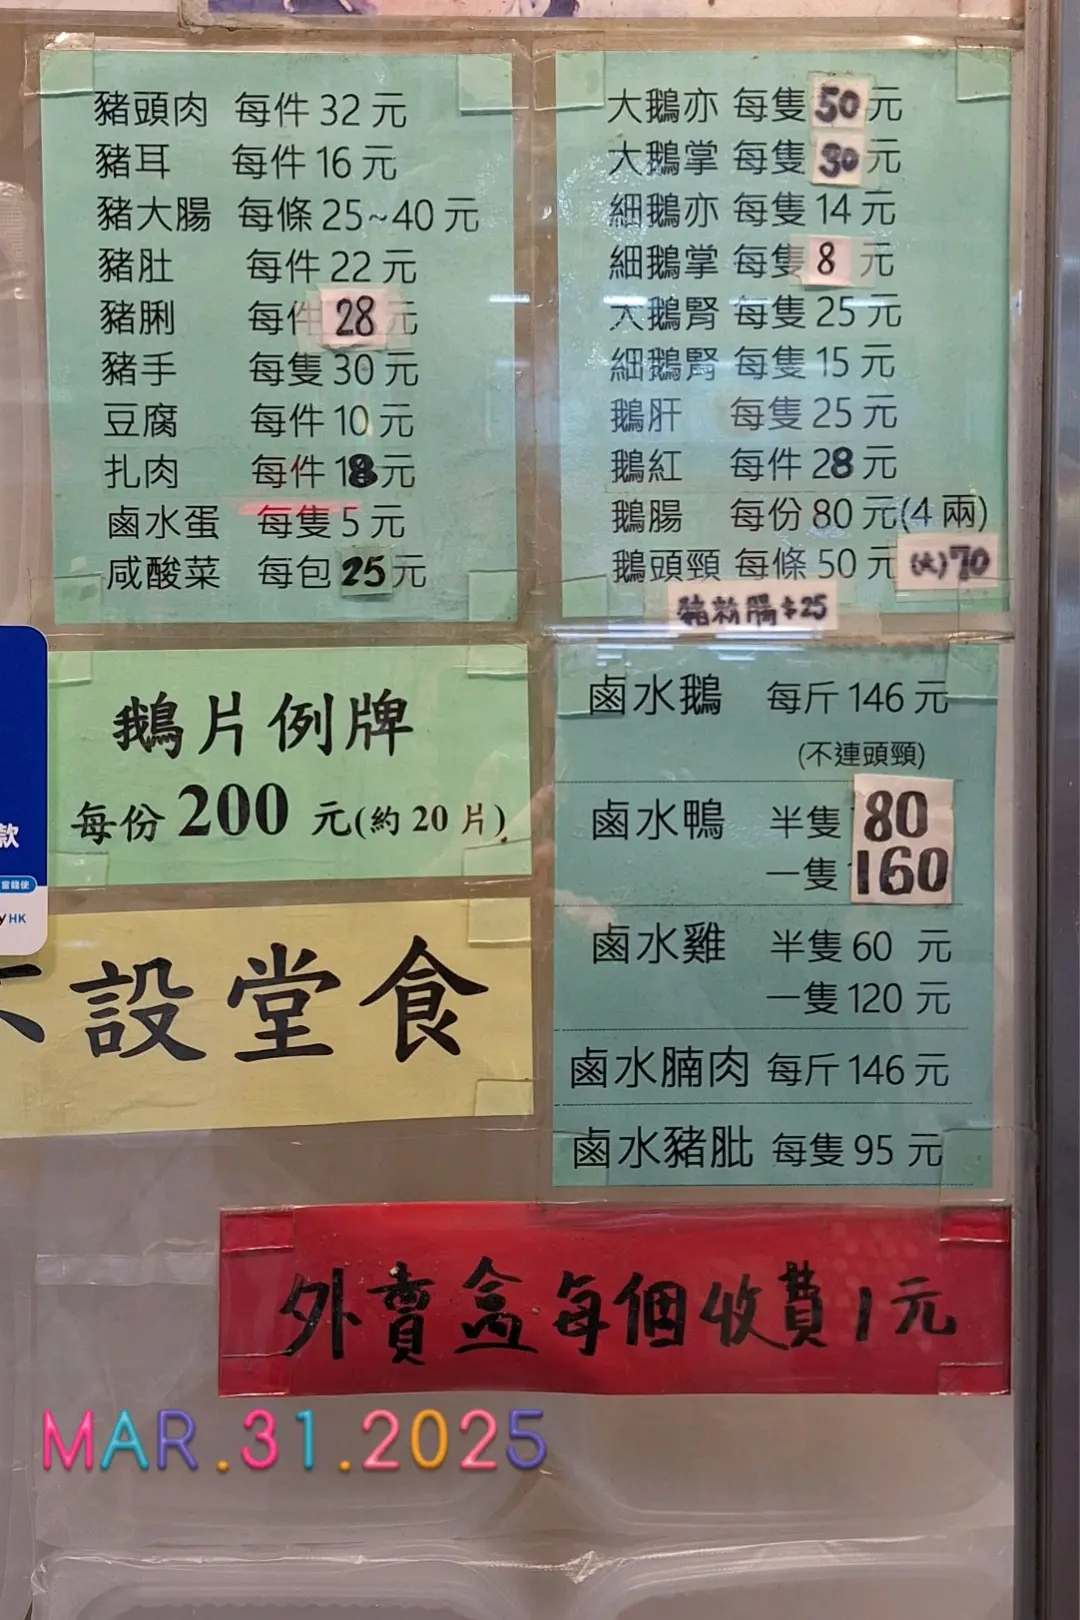 豬頭肉 每件 32 元
豬耳 每件 16 元
豬大腸 每條 25~40 元
豬肚 每件 22 元
豬脷 每件 28 元
豬手 每隻 30 元
豆腐 每件 10 元
扎肉 每件 18 元
鹵水蛋 每隻 5 元
咸酸菜 每包 25 元
大鵝亦 每隻 50 元
大鵝掌 每隻 30 元
細鵝亦 每隻 14 元
細鵝掌 每隻 8 元
大鵝腎 每隻 25 元
細鵝腎 每隻 15 元
鵝肝 每隻 25 元
鵝紅 每件 28 元
鵝腸 每份 80 元(4 兩)
鵝頭頸 每條 50 元 (大)70
豬粉腸 $25
鵝片例牌
每份 200 元(約 20 片)
款
HK
設堂食
鹵水鵝 每斤 146 元
(不連頭頸)
鹵水鴨 半隻 80
一隻 160
鹵水雞 半隻 60 元
一隻 120 元
鹵水腩肉 每斤 146 元
鹵水豬肶 每隻 95 元
外賣盒每個收費1元
MAR.31.2025